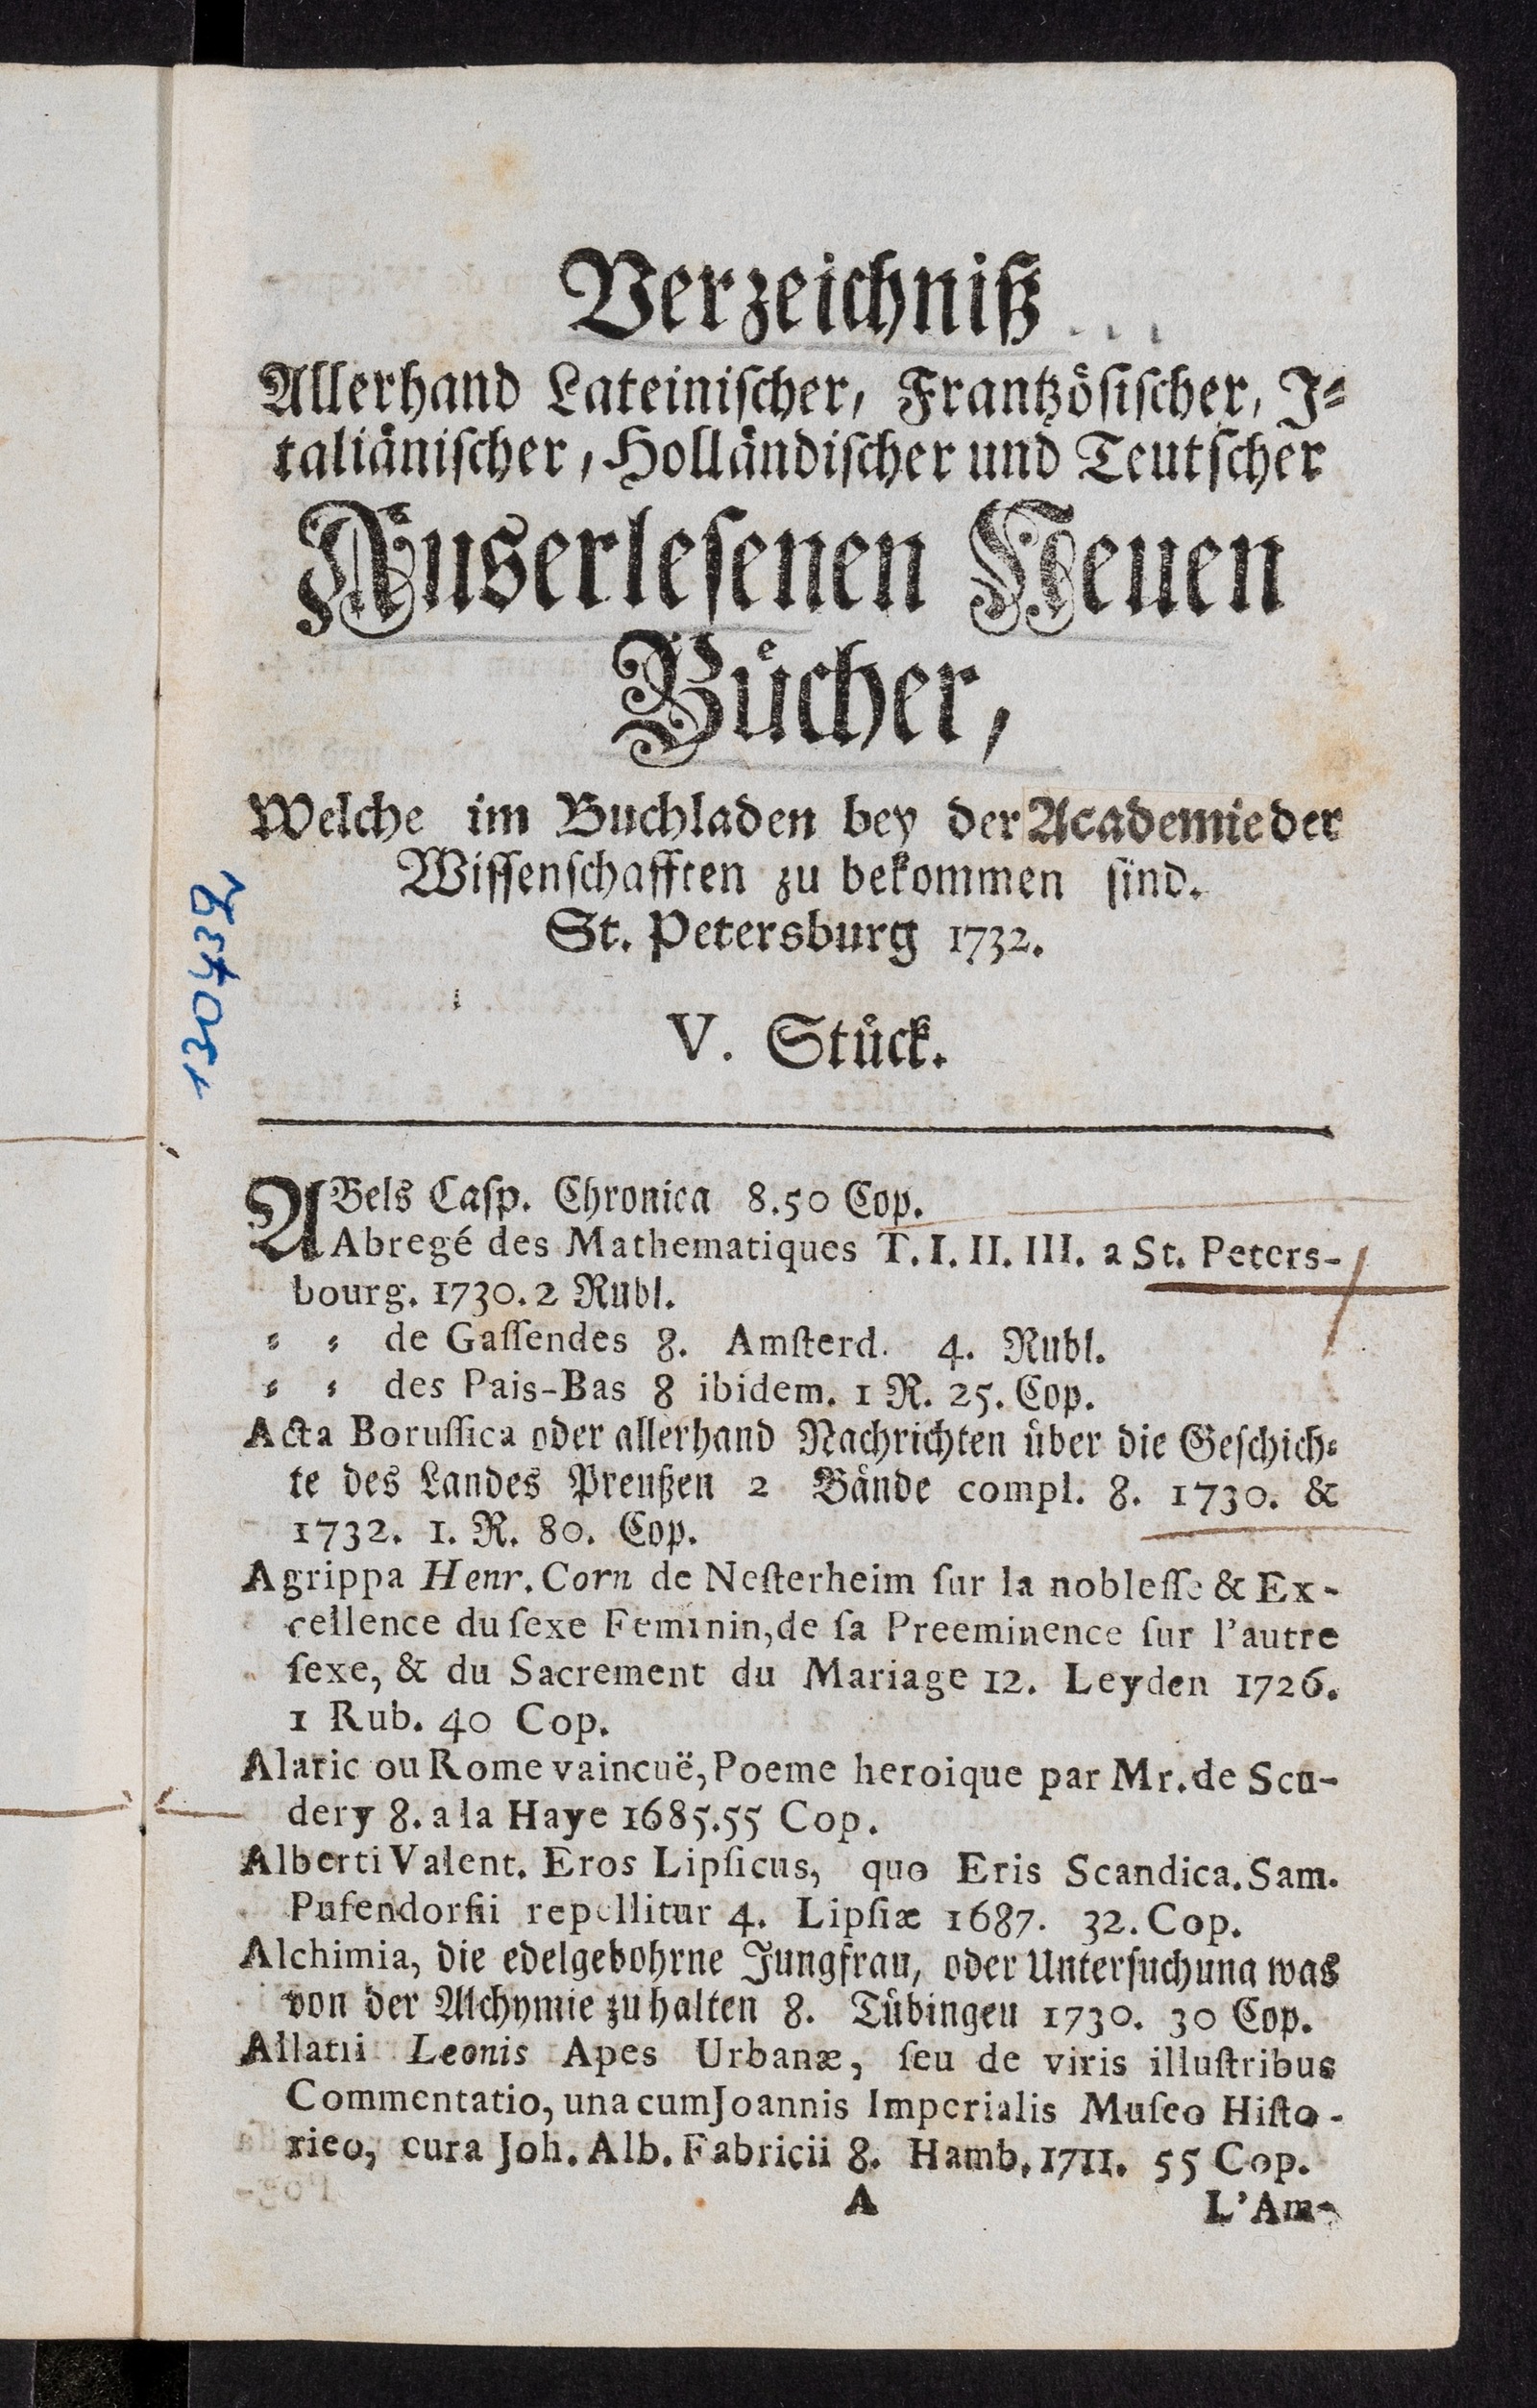 Verzeichniß
Allerhand Lateinischer, Frantzösischer, I-
taliänischer, Holländischer und Teutscher
Auserlesenen Neuen
Bücher,
Welche im Buchladen bey der Academie der
Wissenschafften zu bekommen sind.
St. Petersburg 1732.
V. Stück.
130432
ABels Casp. Chronica 8.50 Cop.
Abregé des Mathematiques T. I. II. III. a St. Peters-
bourg. 1730. 2 Rubl.
- - de Gaſſendes 8. Amſterd. 4. Rubl.
- - des Pais-Bas 8 ibidem. 1 R. 25. Cop.
Acta Boruſſica oder allerhand Nachrichten über die Geschich-
te des Landes Preußen 2 Bände compl. 8. 1730. &
1732. 1. R. 80. Cop.
Agrippa Henr. Corn de Neſterheim ſur la nobleſſe & Ex-
cellence du ſexe Feminin, de ſa Preeminence ſur l'autre
ſexe, & du Sacrement du Mariage 12. Leyden 1726.
1 Rub. 40 Cop.
Alaric ou Rome vaincuë, Poeme heroique par Mr. de Scu-
dery 8. a la Haye 1685. 55 Cop.
Alberti Valent. Eros Lipſicus, quo Eris Scandica. Sam.
Pufendorfii repellitur 4. Lipſiæ 1687. 32. Cop.
Alchimia, die edelgebohrne Jungfrau, oder Untersuchung was
von der Alchymie zu halten 8. Tübingen 1730. 30 Cop.
Allatii Leonis Apes Urbanæ, ſeu de viris illuſtribus
Commentatio, una cum Joannis Imperialis Muſeo Hiſto-
rico, cura Joh. Alb. Fabricii 8. Hamb. 1711. 55 Cop.
A L'Am-